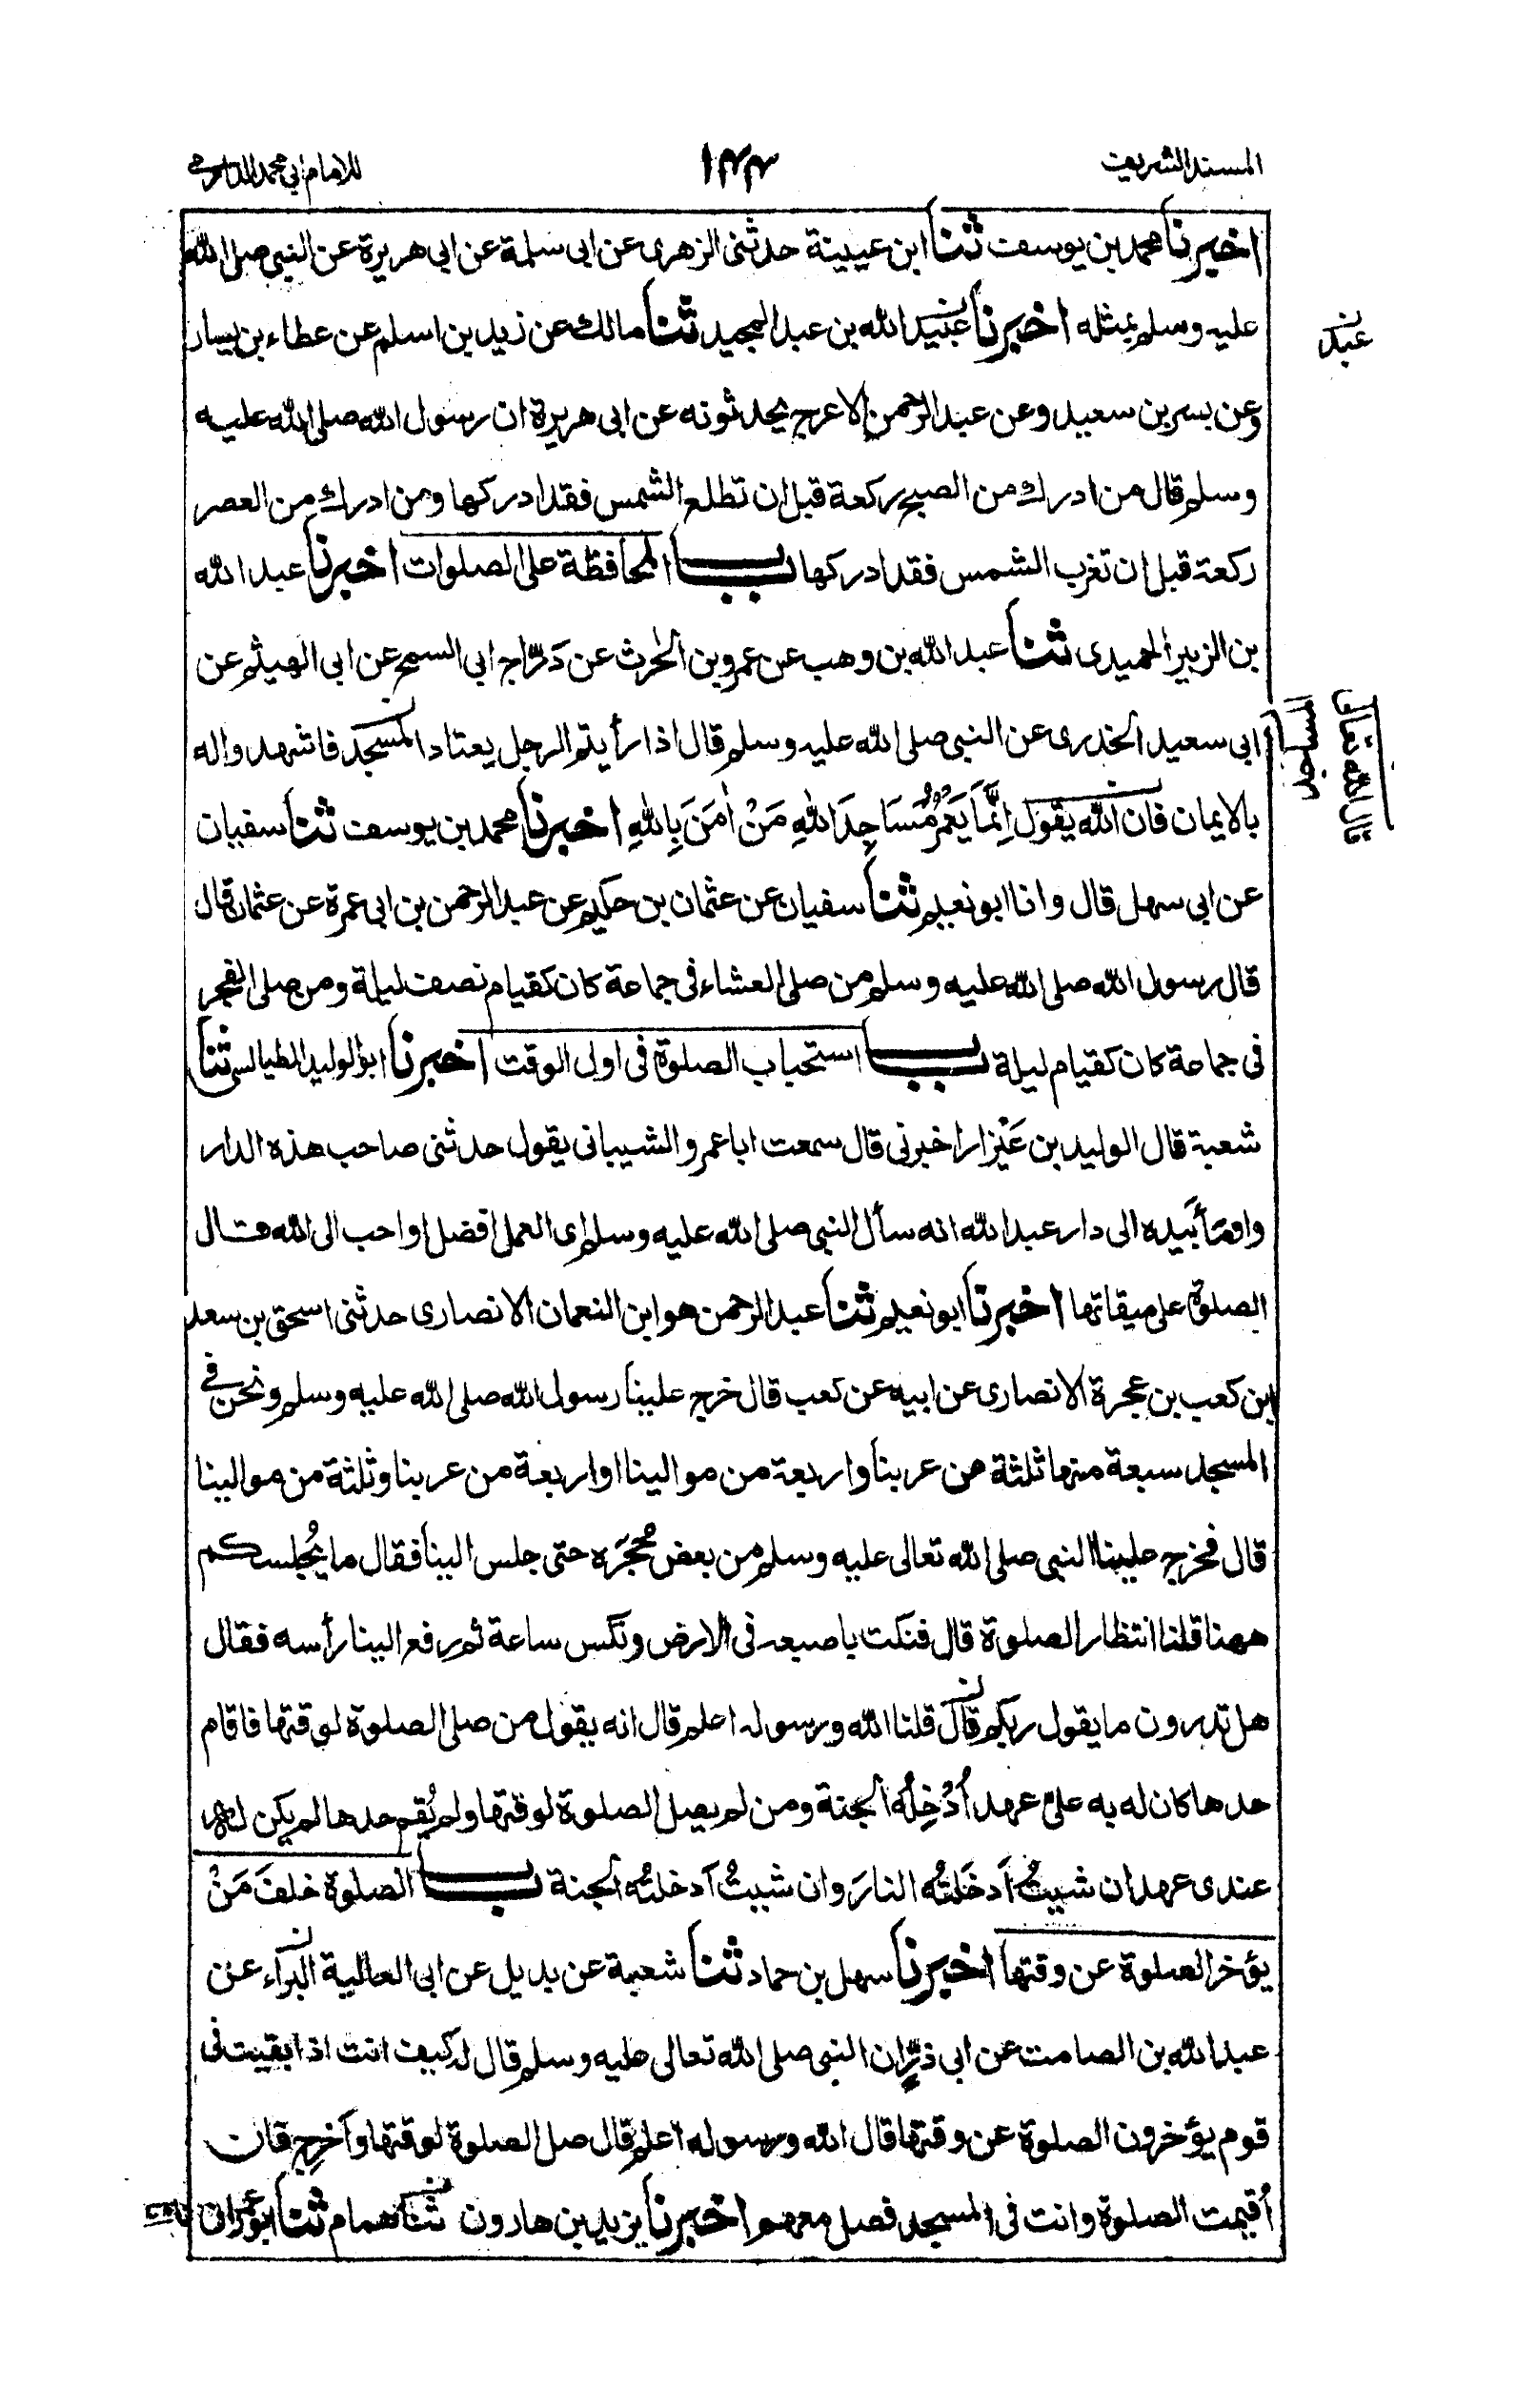 المسند الشريف
١٤٤
للامام ابي محمد الدارمي
اخبرنا محمد بن يوسف ثنا ابن عيينة حدثنى الزهرى عن ابى سلمة عن ابى هريرة عن النبى صلى الله
عليه وسلم بمثله اخبرنا عبيد الله بن عبد المجيد ثنا مالك عن زيد بن اسلم عن عطاء بن يسار
وعن بسر بن سعيد وعن عبد الرحمن الاعرج يحدثونه عن ابى هريرة ان رسول الله صلى الله عليه
وسلم قال من ادرك من الصبح ركعة قبل ان تطلع الشمس فقد ادركها ومن ادرك من العصر
ركعة قبل ان تغرب الشمس فقد ادركها باب المحافظة على الصلوات اخبرنا عبد الله
بن الزبير الحميدى ثنا عبد الله بن وهب عن عمرو بن الحرث عن دَرّاج ابى السمح عن ابى الهيثم عن
ابى سعيد الخدرى عن النبى صلى الله عليه وسلم قال اذا رأيتم الرجل يعتاد المسجد فاشهدوا له
بالايمان فان الله يقول اِنَّمَا يَعْمُرُ مَسَاجِدَ اللهِ مَنْ اٰمَنَ بِاللهِ اخبرنا محمد بن يوسف ثنا سفيان
عن ابى سهل قال وانا ابو نعيم ثنا سفيان عن عثمان بن حكيم عن عبد الرحمن بن ابى عمرة عن عثمان قال
قال رسول الله صلى الله عليه وسلم من صلى العشاء فى جماعة كان كقيام نصف ليلة ومن صلى الفجر
فى جماعة كان كقيام ليلة باب استحباب الصلوة فى اول الوقت اخبرنا ابو الوليد الطيالسى ثنا
شعبة قال الوليد بن عَيْزار اخبرنى قال سمعت ابا عمرو الشيبانى يقول حدثنى صاحب هذه الدار
واومأ بَيده الى دار عبد الله انه سأل النبى صلى الله عليه وسلم اى العمل افضل او احب الى الله قال
الصلوة على ميقاتها اخبرنا ابو نعيم ثنا عبد الرحمن هو ابن النعمان الانصارى حدثنى اسحق بن سعد
ابن كعب بن عجرة الانصارى عن ابيه عن كعب قال خرج علينا رسول الله صلى الله عليه وسلم ونحن فى
المسجد سبعة منها ثلثة من عربنا واربعة من موالينا او اربعة من عربنا وثلثة من موالينا
قال فخرج علينا النبى صلى الله تعالى عليه وسلم من بعض حُجَره حتى جلس الينا فقال ما يُجلسكم
ههنا قلنا انتظار الصلوة قال فنكت باصبعه فى الارض ونكس ساعة ثم رفع الينا رأسه فقال
هل تدرون ما يقول ربكم قال قلنا الله ورسوله اعلم قال انه يقول من صلى الصلوة لوقتها فاقام
حدها كان له به علىّ عهد اُدْخِلُه الجنة ومن لم يصل الصلوة لوقتها ولم يُقم حدها لم يكن له
عندى عهد ان شيتُ اَدخَلتُه النارَ وان شيتُ اَدخلتُه الجنة باب الصلوة خلفَ مَنْ
يؤخر الصلوة عن وقتها اخبرنا سهل بن حماد ثنا شعبة عن بديل عن ابى العالية البرّاء عن
عبد الله بن الصامت عن ابى ذرٍّ ان النبى صلى الله تعالى عليه وسلم قال له كيف انت اذا بقيت فى
قوم يؤخرون الصلوة عن وقتها قال الله ورسوله اعلم قال صل الصلوة لوقتها واَخرِج فان
اُقيمت الصلوة وانت فى المسجد فصل معهم اخبرنا يزيد بن هارون ثنا همام ثنا ابو عمران
عبد
المساجد
قال الله تعالى